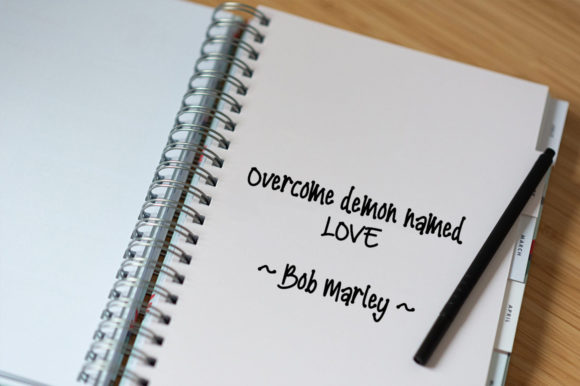 Overcome demon named
LOVE
~ Bob Marley ~
MARCH
APRIL